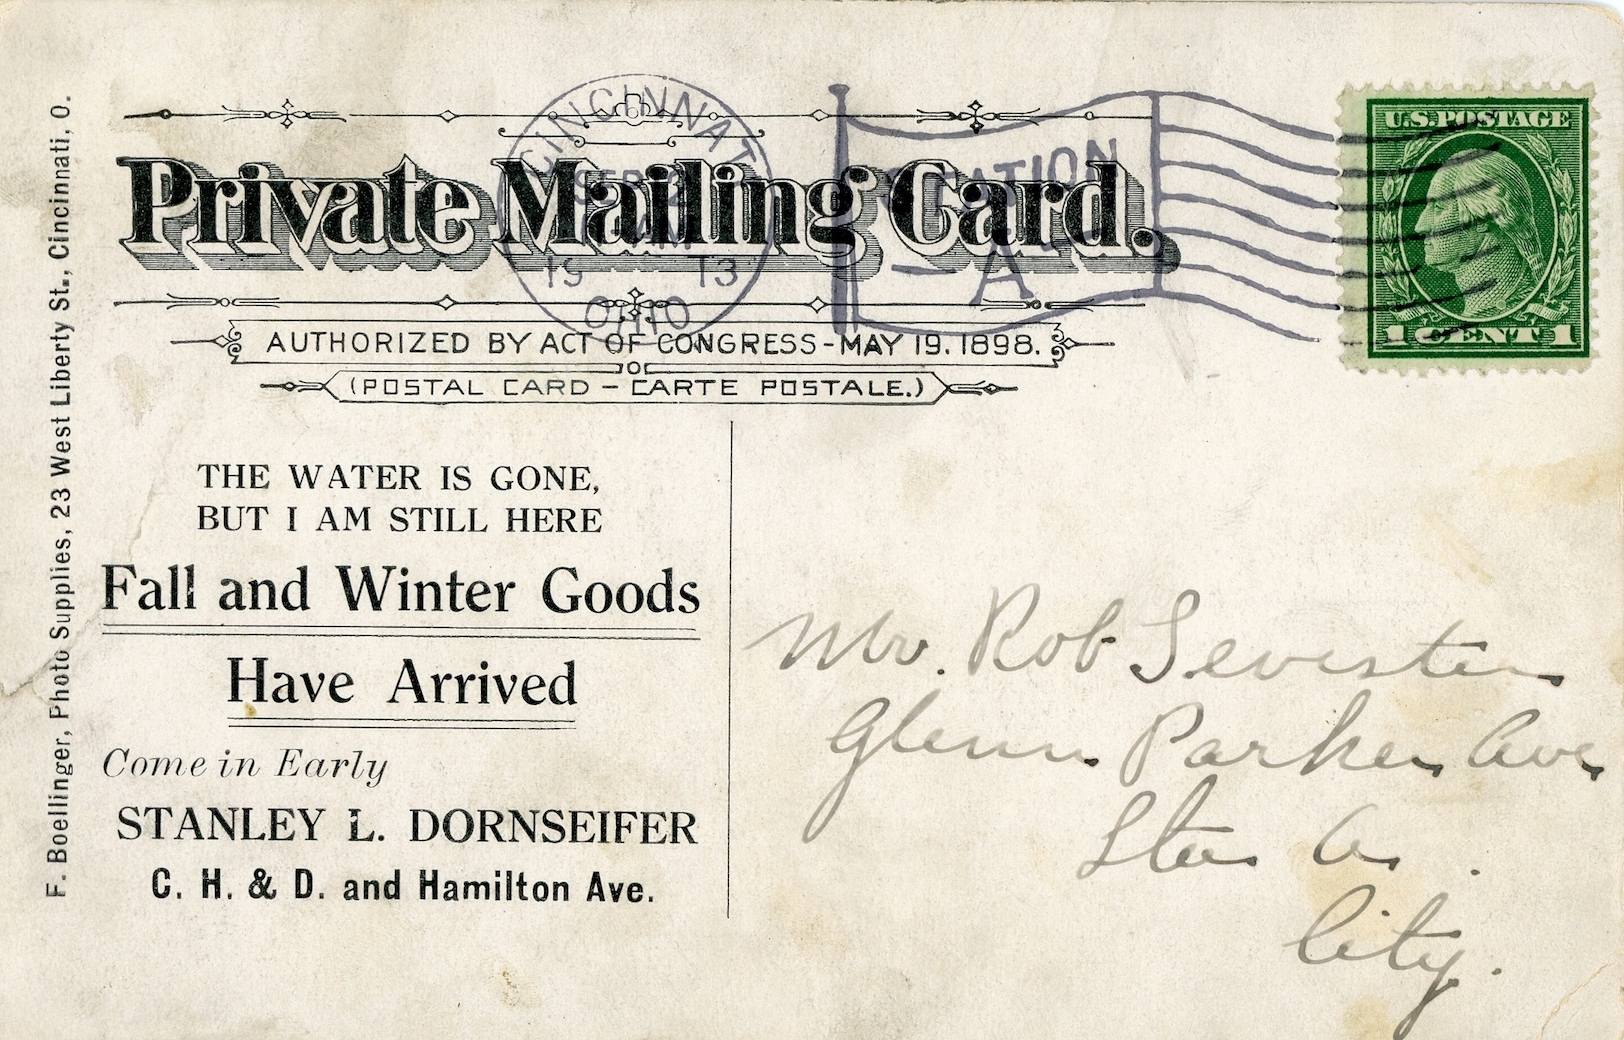 F. Boellinger, Photo Supplies, 23 West Liberty St., Cincinnati, O.
CINCINNATI
SEP
AM
19 13
OHIO
STATION
A
U.S. POSTAGE
1 CENT 1
Private Mailing Card.
AUTHORIZED BY ACT OF CONGRESS-MAY 19. 1898.
(POSTAL CARD - CARTE POSTALE.)
THE WATER IS GONE,
BUT I AM STILL HERE
Fall and Winter Goods
Have Arrived
Come in Early
STANLEY L. DORNSEIFER
C. H. & D. and Hamilton Ave.
Mr. Rob
Glenn Parker Ave
Sta A.
City.